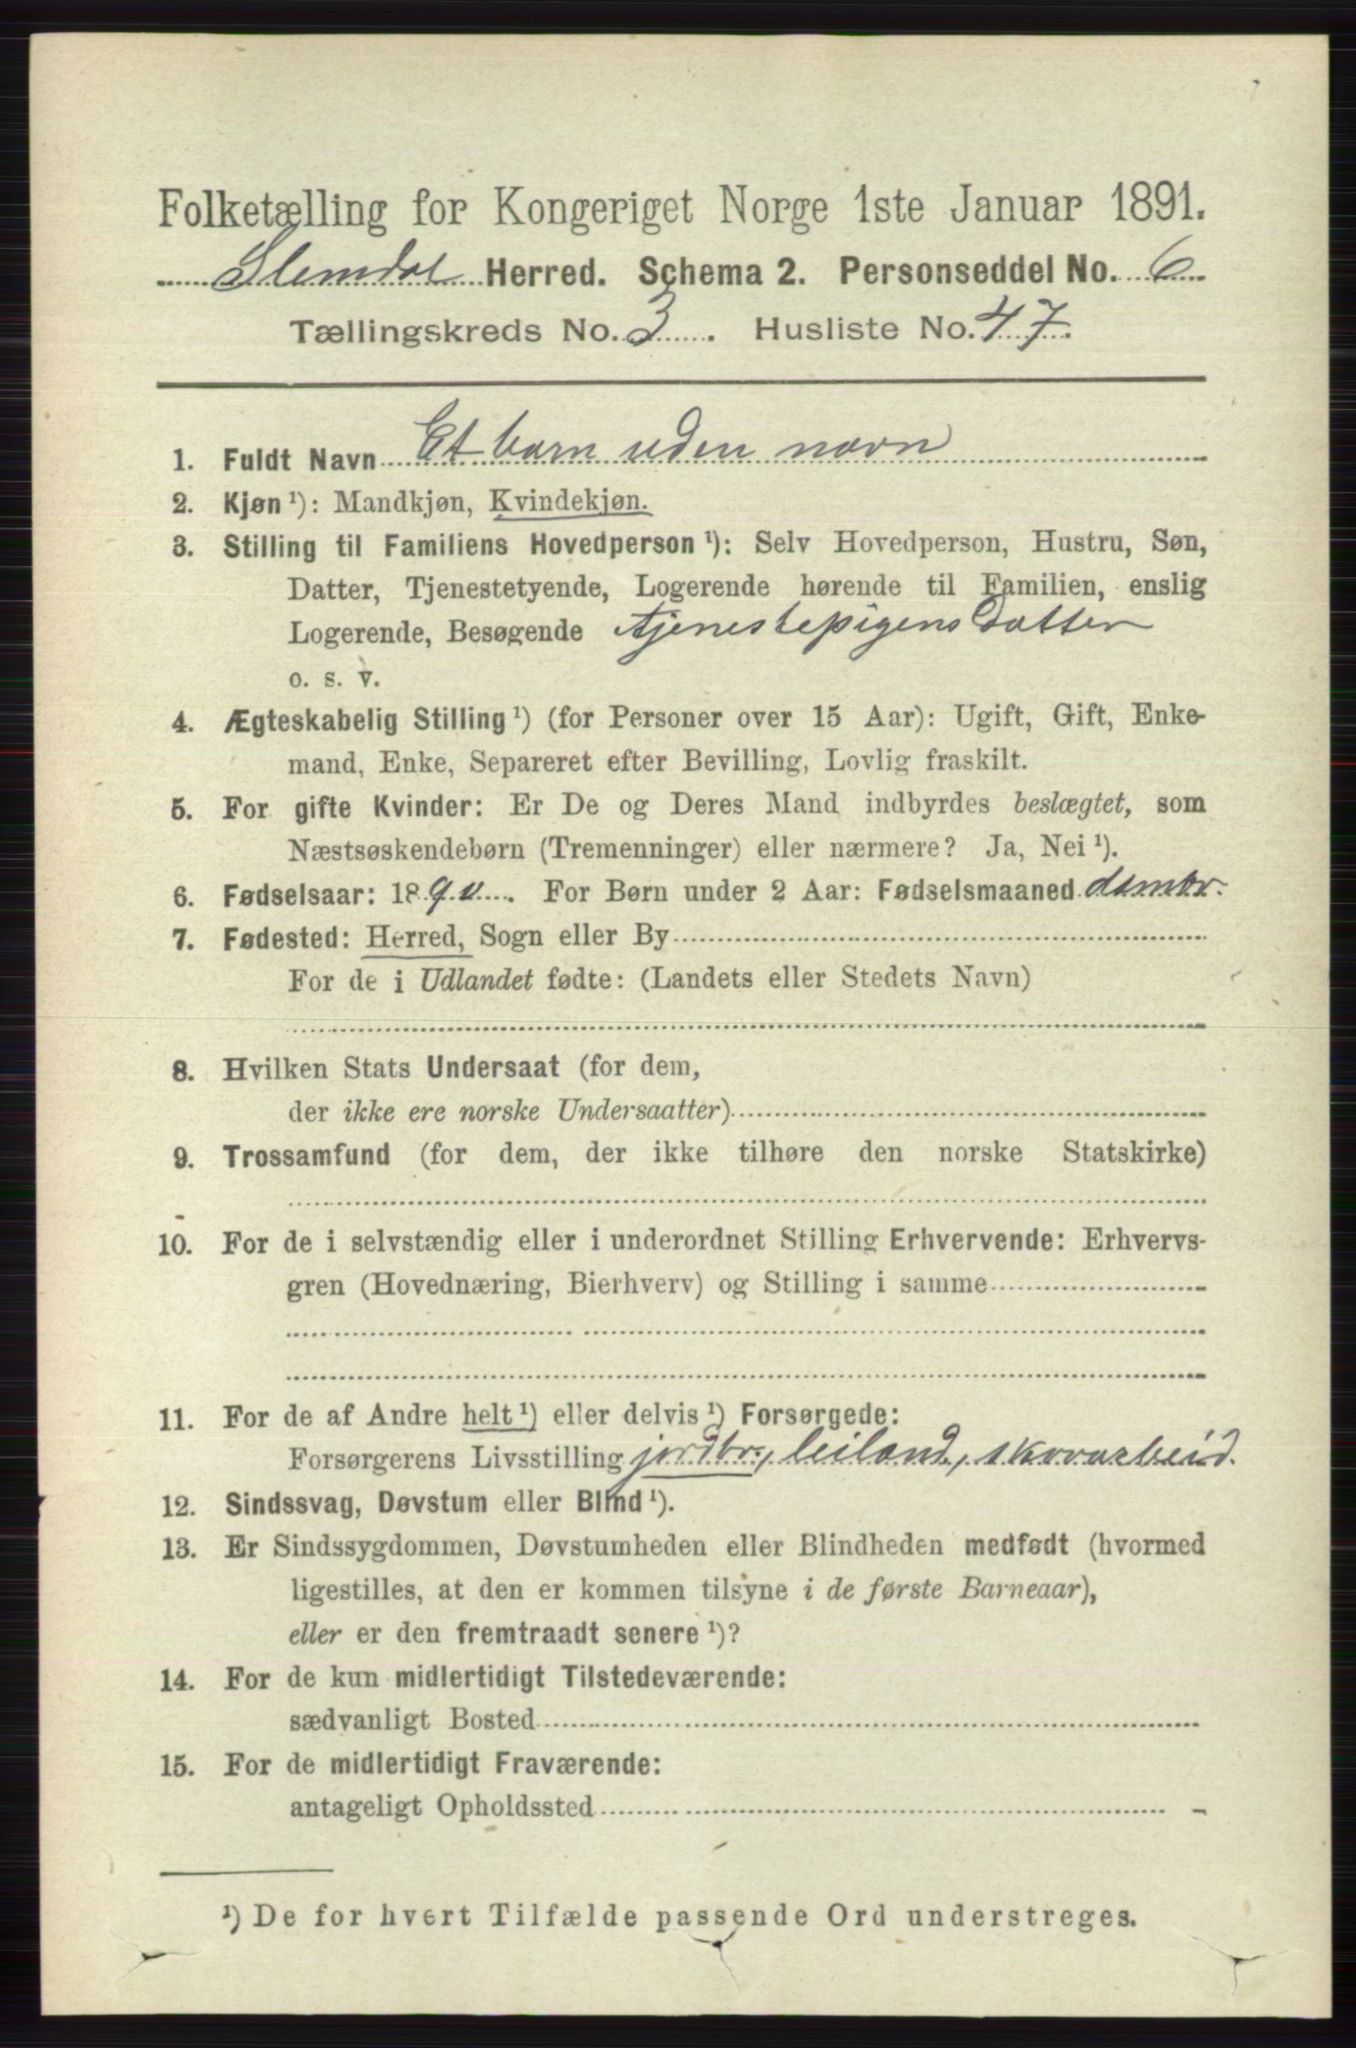 Folketælling for Kongeriget Norge 1ste Januar 1891.
Slemdal Herred. Schema 2. Personseddel No. 6
Tællingskreds No. 3. Husliste No. 47.
1. Fuldt Navn Et barn uden navn
2. Kjøn ¹): Mandkjøn, Kvindekjøn.
3. Stilling til Familiens Hovedperson ¹): Selv Hovedperson, Hustru, Søn,
Datter, Tjenestetyende, Logerende hørende til Familien, enslig
Logerende, Besøgende tjenestepigens Datter
o. s. v.
4. Ægteskabelig Stilling ¹) (for Personer over 15 Aar): Ugift, Gift, Enke-
mand, Enke, Separeret efter Bevilling, Lovlig fraskilt.
5. For gifte Kvinder: Er De og Deres Mand indbyrdes beslægtet, som
Næstsøskendebørn (Tremenninger) eller nærmere? Ja, Nei ¹).
6. Fødselsaar: 1890. For Børn under 2 Aar: Fødselsmaaned dsmbr.
7. Fødested: Herred, Sogn eller By
For de i Udlandet fødte: (Landets eller Stedets Navn)
8. Hvilken Stats Undersaat (for dem,
der ikke ere norske Undersaatter)
9. Trossamfund (for dem, der ikke tilhøre den norske Statskirke)
10. For de i selvstændig eller i underordnet Stilling Erhvervende: Erhvervs-
gren (Hovednæring, Bierhverv) og Stilling i samme
11. For de af Andre helt ¹) eller delvis ¹) Forsørgede:
Forsørgerens Livsstilling jordbr., leiland., skovarbeid.
12. Sindssvag, Døvstum eller Blind ¹).
13. Er Sindssygdommen, Døvstumheden eller Blindheden medfødt (hvormed
ligestilles, at den er kommen tilsyne i de første Barneaar),
eller er den fremtraadt senere ¹)?
14. For de kun midlertidigt Tilstedeværende:
sædvanligt Bosted
15. For de midlertidigt Fraværende:
antageligt Opholdssted
¹) De for hvert Tilfælde passende Ord understreges.